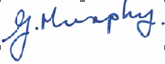 G. Murphy.